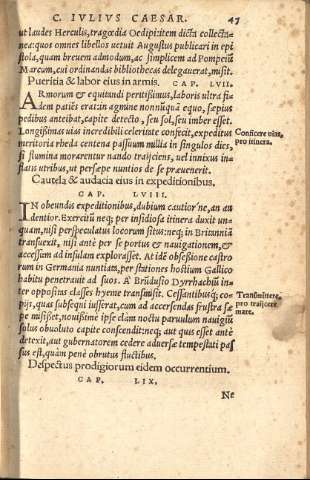 C. IVLIVS CAESAR. 47
ut laudes Herculis, tragœdia Oedipi: item dicta collecta-
nea: quos omnes libellos uetuit Augustus publicari in epi
stola, quam breuem admodum, ac simplicem ad Pompeiũ
Marcum, cui ordinandas bibliothecas delegauerat, misit.
Pueritia & labor eius in armis. CAP. LVII.
ARmorum & equitandi peritissimus, laboris ultra fi
dem patiẽs erat: in agmine nonnũquã equo, sæpius
pedibus anteibat, capite detecto, seu sol, seu imber esset.
Longissimas uias incredibili celeritate confecit, expeditus
meritoria rheda centena passuum millia in singulos dies,
si flumina morarentur nando traijciens, uel innixus in-
flatis utribus, ut persæpe nuntios de se præuenerit.
Conficere uias,
pro itinera.
Cautela & audacia eius in expeditionibus.
CAP. LVIII.
IN obeundis expeditionibus, dubium cautior'ne, an au
dentior. Exercitũ neq; per insidiosa itinera duxit un-
quam, nisi perspeculatus locorum situs: neq; in Britanniã
transuexit, nisi antè per se portus & nauigationem, &
accessum ad insulam explorasset. At idẽ obsessione castro
rum in Germania nuntiata, per stationes hostium Gallico
habitu penetrauit ad suos. A Brũdusio Dyrrhachiũ in-
ter oppositas classes hyeme transmisit. Cessantibusq́; co-
pijs, quas subsequi iusserat, cum ad accersendas frustra sæ-
pe misisset, nouissimè ipse clàm noctu paruulum nauigiũ
solus obuoluto capite conscendit: neq; aut quis esset antè
detexit, aut gubernatorem cedere aduersæ tempestati pas
sus est, quàm penè obrutus fluctibus.
Transmittere,
pro traijcere
mare.
Despectus prodigiorum eidem occurrentium.
CAP. LIX.
Ne